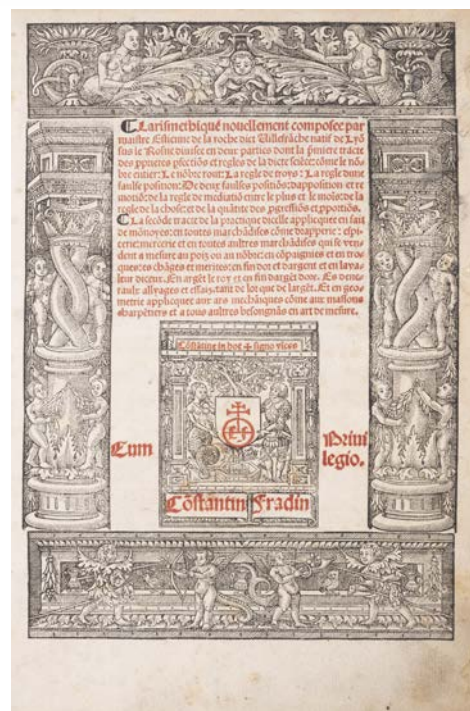 Larismethique nouellement composee par
maistre Estienne de la roche dict Villefrāche natif de Lyō
sus le Rosne diuisee en deux parties dont la p̄miere tracte
des ꝓprietes ꝑfectiōs et regles de la dicte sciēce: cōme le nō
bre entier: Le nōbre rout: La regle de troys: La regle dune
faulse position: De deux faulses positiōs: dapposition et re
motiō: de la regle de mediatiō entre le plus et le moīs: de la
regle de la chose: et de la quātite des ꝓgressiōs et ꝓportiōs.
La secōde tracte de la practique dicelle applicquee en fait
de mōnoyes: en toutes marchādises cōme drapperie: espi-
cerie: mercerie et en toutes aultres marchādises qui se ven-
dent a mesure au poiz ou au nōbre: en cōpaignies et en troc-
ques: es chāges et merites: en fin dor et dargent et en laua-
leur diceux. En argēt le roy et en fin dargēt dore. Es dene-
raulx allyages et essaiz tant de lor que de largēt. Et en geo-
metrie applicquee aux ars mechāiques cōme aux massons
charpētiers et a tous aultres besongnās en art de mesure.
Cōstātine in hoc ✝ signo vīces
Cum Priui
legio.
Cōstantin Fradin